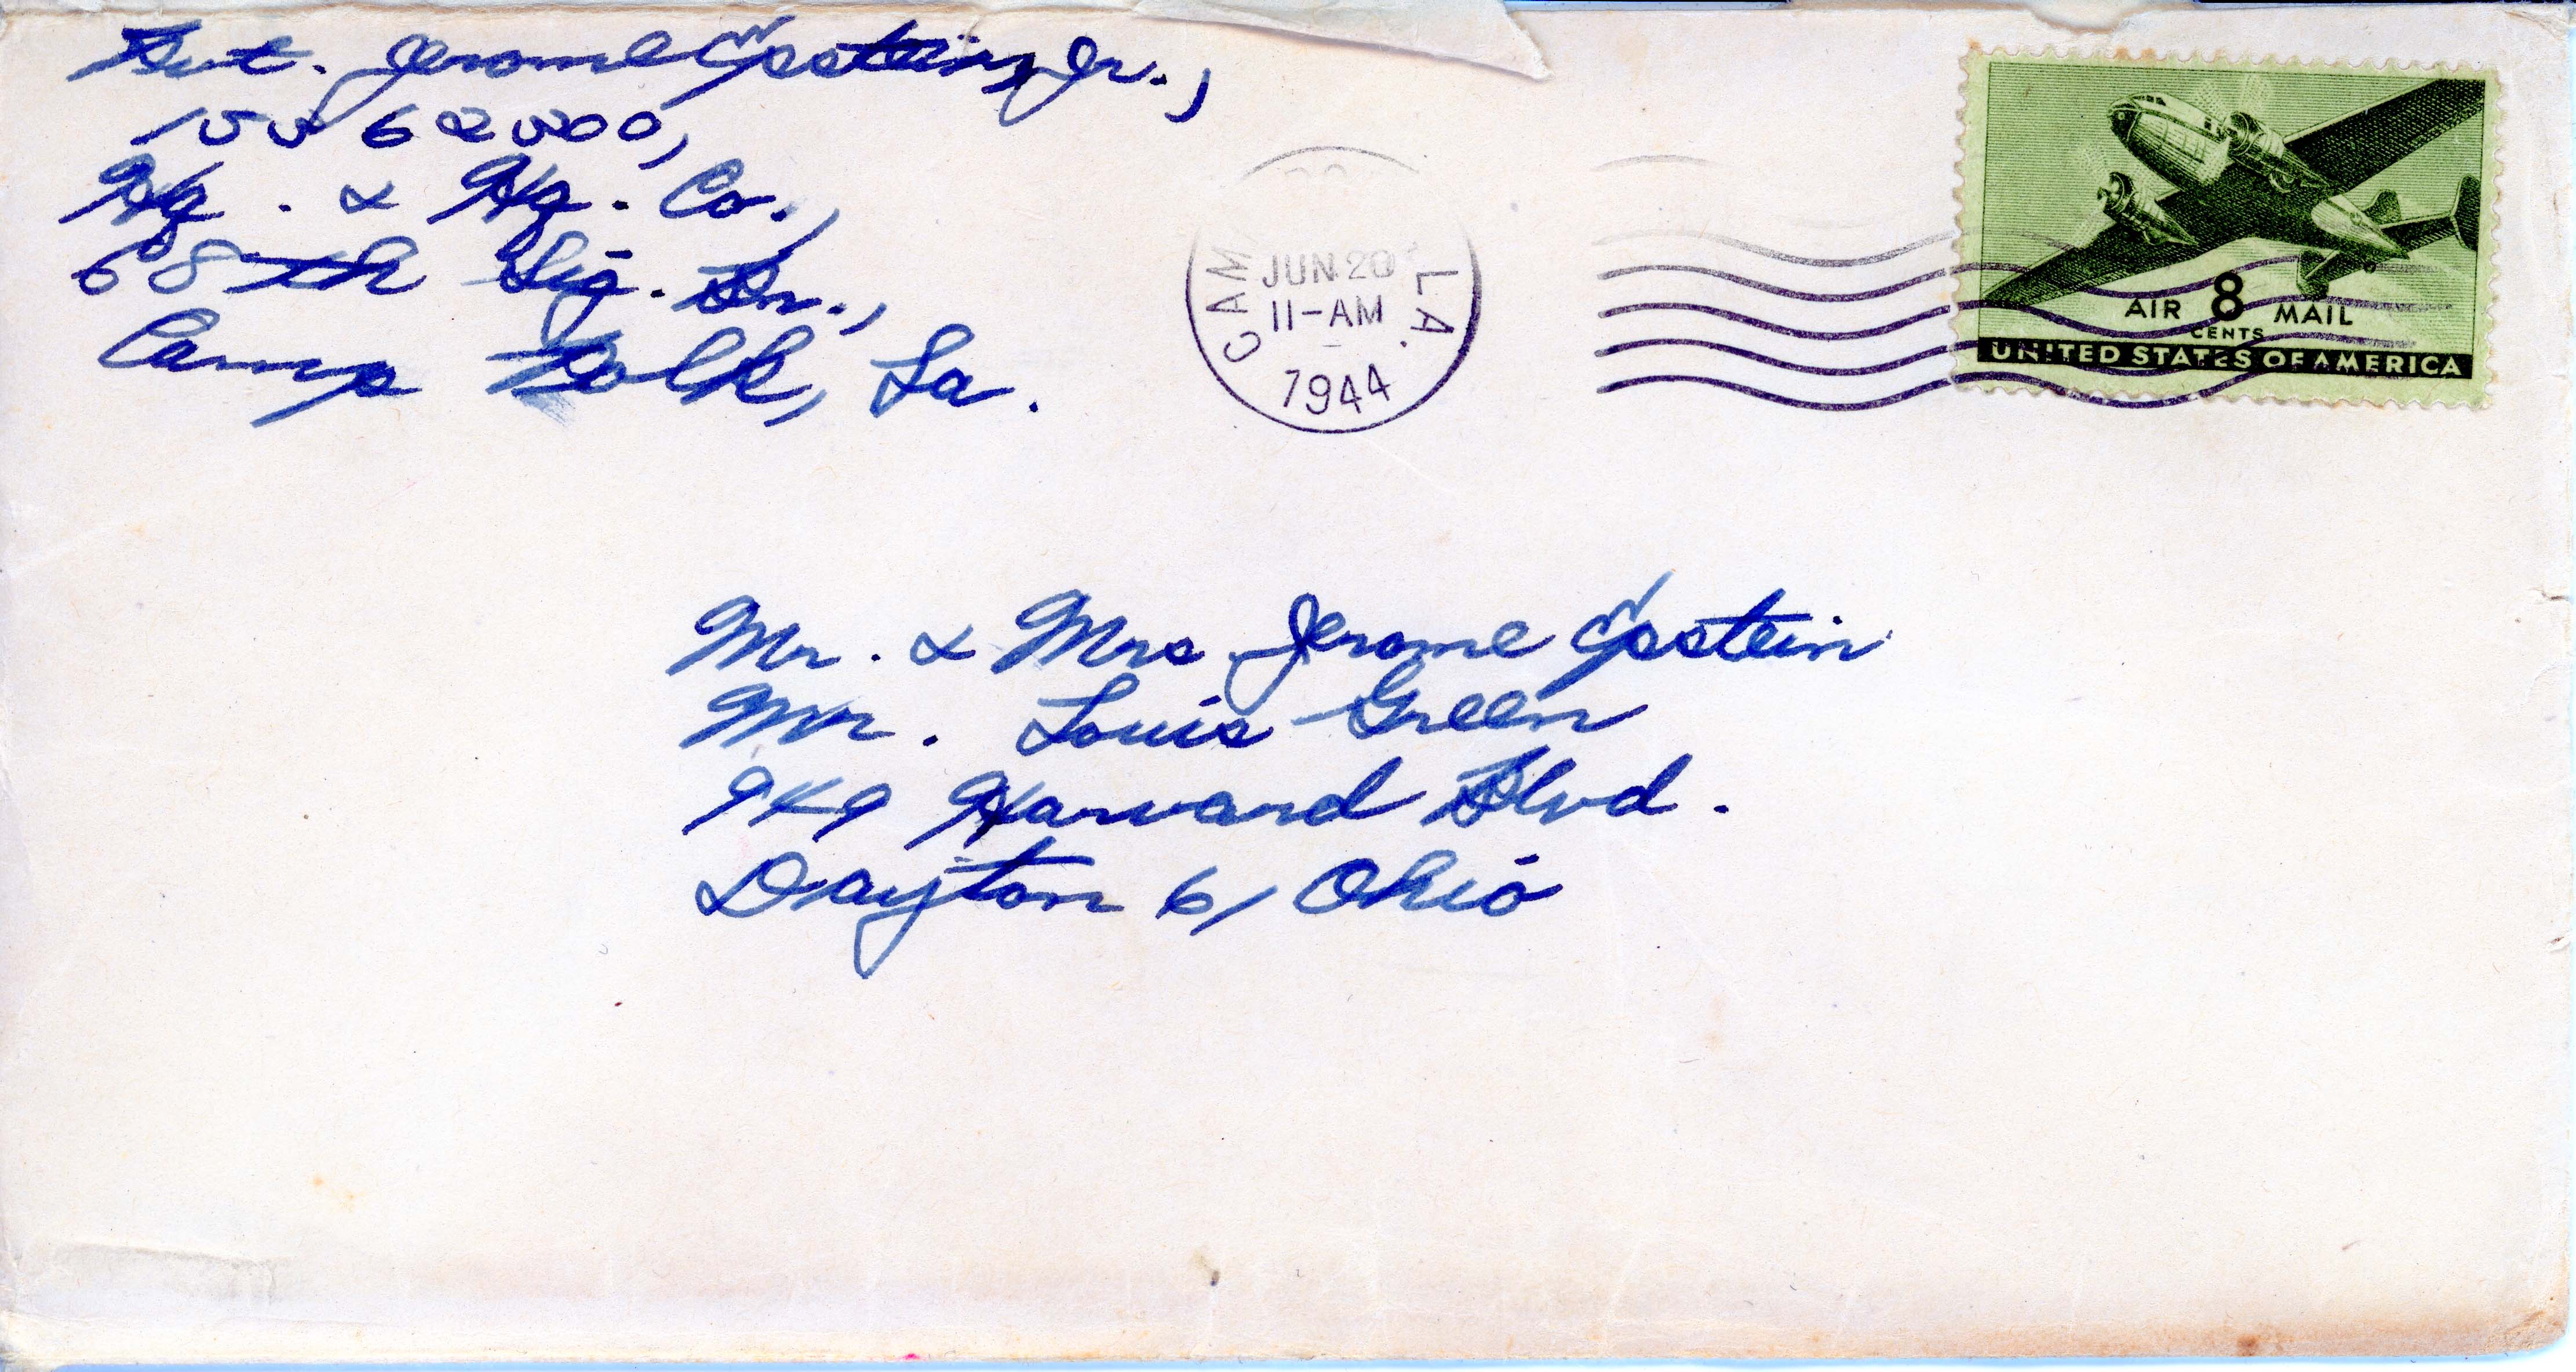 Pvt. Jerome Epstein, Jr.,
155 62500,
Hq. & Hq. Co.,
68th Sig. Bn.,
Camp Polk, La.
CAM LA.
JUN 20
11-AM
1944
AIR 8 MAIL
CENTS
UNITED STATES OF AMERICA
Mr. & Mrs. Jerome Epstein
Mr. Louis Green
949 Harvard Blvd.
Dayton 6, Ohio